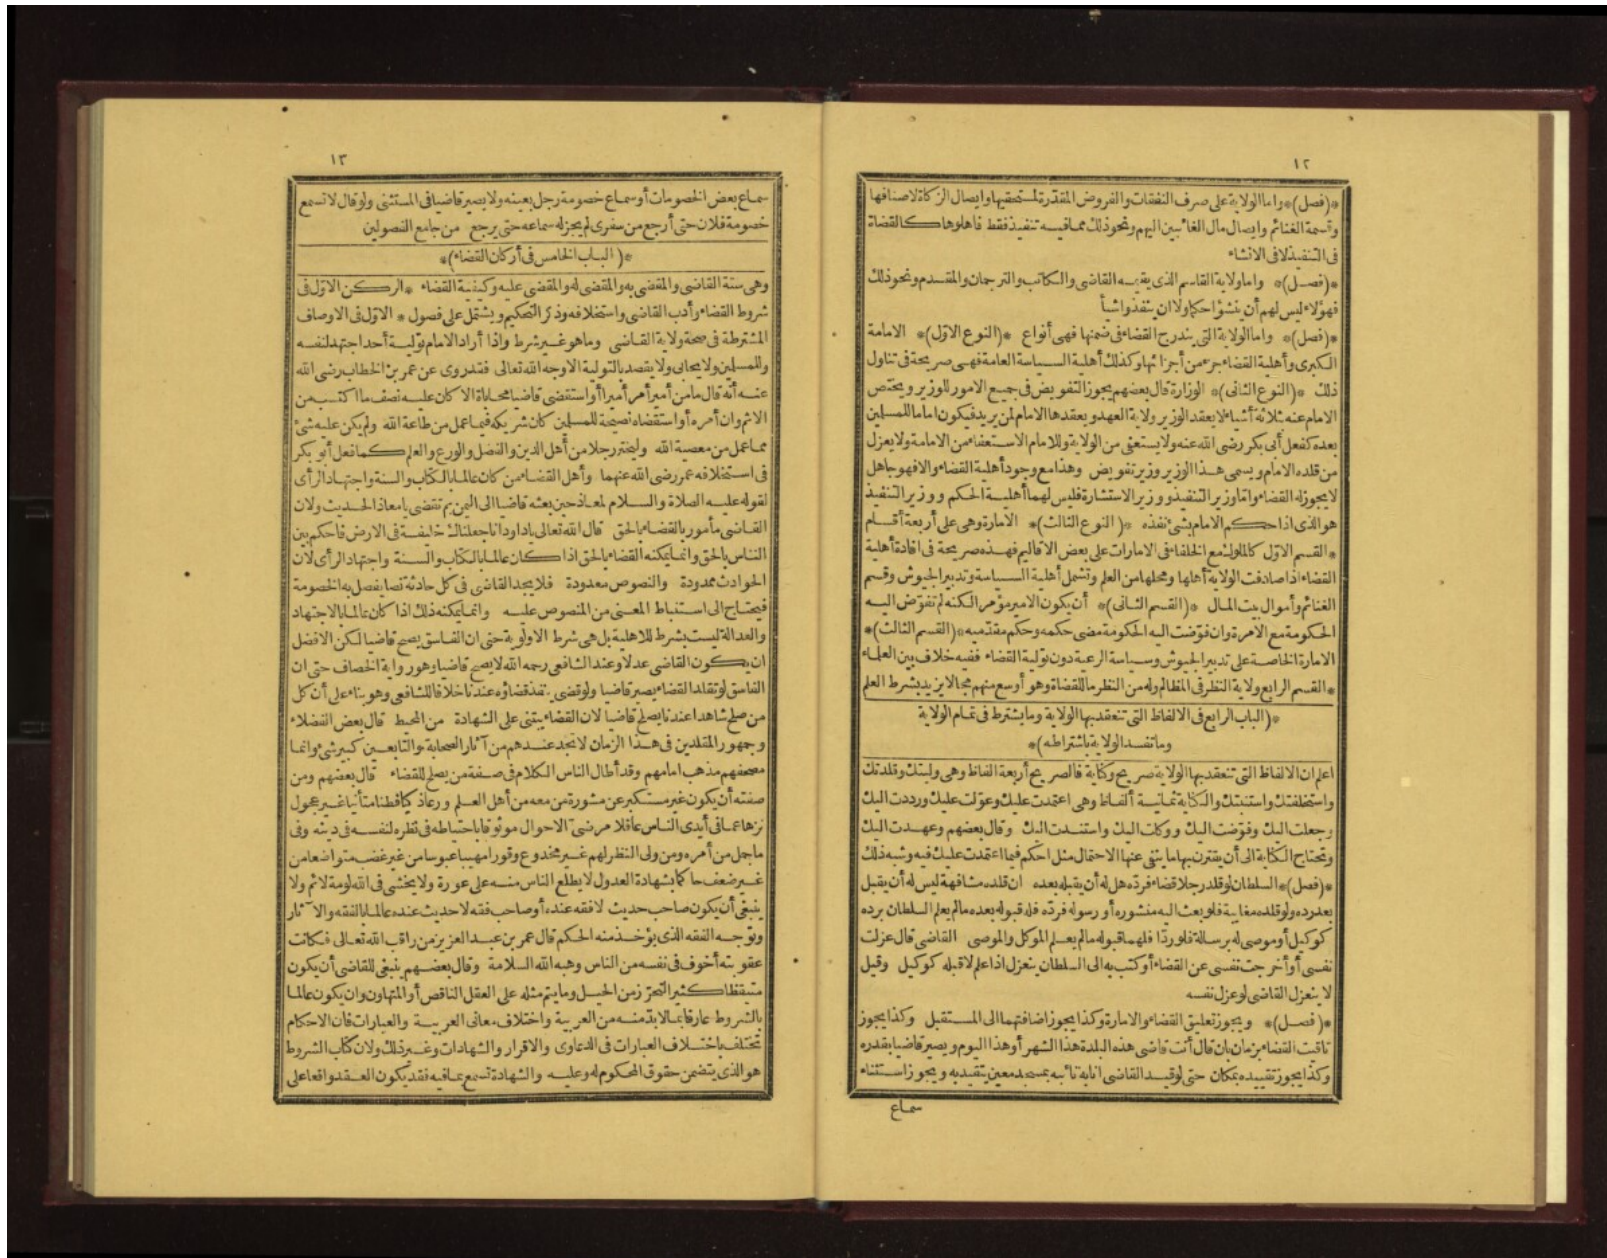 ١٢
*(فصل)* واما الولاية على صرف النفقات والفروض المقدّرة لمستحقيها وايصال الزكاة لاصنافها
وقسمة الغنائم وايصال مال الغائبين اليهم ونحو ذلك مما فيه تنفيذ فقط فأهلوها كالقضاة
فى التنفيذ لا فى الانشاء
*(فصل)* واما ولاية القاسم الذى يقيمه القاضى والكاتب والترجمان والمقدم ونحو ذلك
فهؤلاء ليس لهم أن ينشؤا حكما ولا ان ينفذوا شيأ
*(فصل)* واما الولاية التى يندرج القضاء فى ضمنها فهى أنواع *(النوع الاوّل)* الامامة
الكبرى وأهلية القضاء جزء من أجزائها وكذلك أهلية السياسة العامة فهى صريحة فى تناول
ذلك *(النوع الثانى)* الوزارة قال بعضهم يجوز التفويض فى جميع الامور للوزير ويختص
الامام عنه بثلاثة أشياء لا يعقد الوزير ولاية العهد ويعقدها الامام لمن يريد فيكون اماما للمسلمين
بعده كفعل أبى بكر رضى الله عنه ولا يستعفى من الولاية وللامام الاستعفاء من الامامة ولا يعزل
من قلده الامام ويسمى هذا الوزير وزير تفويض وهذا مع وجود أهلية القضاء والا فهو جاهل
لا يجوز له القضاء واما وزير التنفيذ ووزير الاستشارة فليس لهما أهلية الحكم ووزير التنفيذ
هو الذى اذا حكم الامام بشئ نفذه *(النوع الثالث)* الامارة وهى على أربعة أقسام
*القسم الاوّل كالملوك مع الخلفاء فى الامارات على بعض الاقاليم فهذه صريحة فى افادة أهلية
القضاء اذا صادفت الولاية أهلها ومحلها من العلم وتشمل أهلية السياسة وتدبير الجيوش وقسم
الغنائم وأموال بيت المال *(القسم الثانى)* أن يكون الامير مؤمرا لكنه لم تفوّض اليه
الحكومة مع الامرة وان فوّضت اليه الحكومة مضى حكمه وحكم مقدّميه *(القسم الثالث)*
الامارة الخاصة على تدبير الجيوش وسياسة الرعية دون تولية القضاء ففيه خلاف بين العلماء
*القسم الرابع ولاية النظر فى المظالم وله من النظر ما للقضاة وهو أوسع منهم مجالا يزيد بشرط العلم
*(الباب الرابع فى الالفاظ التى تنعقد بها الولاية وما يشترط فى تمام الولاية
وما تفسد الولاية باشتراطه)*
اعلم ان الالفاظ التى تنعقد بها الولاية صريح وكناية فالصريح أربعة ألفاظ وهى وليتك وقلدتك
واستخلفتك واستنبتك والكناية ثمانية ألفاظ وهى اعتمدت عليك وعوّلت عليك ورددت اليك
وجعلت اليك وفوّضت اليك ووكلت اليك واستندت اليك وقال بعضهم وعهدت اليك
وتحتاج الكناية الى أن يقترن بها ما ينفى عنها الاحتمال مثل احكم فيما اعتمدت عليك فيه وشبه ذلك
*(فصل)* السلطان لو قلد رجلا قضاء فردّه هل له أن يقبله بعده ان قلده مشافهة ليس له أن يقبل
بعد رده ولو قلده مغايبة فلو بعث اليه منشوره أو رسوله فردّه فله قبوله بعده ما لم يعلم السلطان برده
كوكيل أو موصى له برسالة فلو ردّا فلهما قبوله ما لم يعلم الموكل والموصى القاضى قال عزلت
نفسى أو أخرجت نفسى عن القضاء أو كتب به الى السلطان ينعزل اذا علم لا قبله كوكيل وقيل
لا ينعزل القاضى لو عزل نفسه
*(فصل)* ويجوز تعليق القضاء والامارة وكذا يجوز اضافتهما الى المستقبل وكذا يجوز
تاقيت القضاء بزمان بان قال أنت قاضى هذه البلدة هذا الشهر أو هذا اليوم ويصير قاضيا بقدره
وكذا يجوز تقييده بمكان حتى لو قيد القاضى انابة نائبه بمسجد معين يتقيد به ويجوز استثناء
سماع
١٣
سماع بعض الخصومات أو سماع خصومة رجل بعينه ولا يصير قاضيا فى المستثنى ولو قال لا تسمع
خصومة فلان حتى أرجع من سفرى لم يجز له سماعه حتى يرجع من جامع الفصولين
*(الباب الخامس فى أركان القضاء)*
وهى ستة القاضى والمقضى به والمقضى له والمقضى عليه وكيفية القضاء *الركن الاوّل فى
شروط القضاء وأدب القاضى واستخلافه وذكر التحكيم ويشتمل على فصول *الاوّل فى الاوصاف
المشترطة فى صحة ولاية القاضى وما هو غير شرط واذا أراد الامام تولية أحد اجتهد لنفسه
وللمسلمين ولا يحابى ولا يقصد بالتولية الا وجه الله تعالى فقد روى عن عمر بن الخطاب رضى الله
عنه أنه قال ما من أمير أمر أميرا أو استقضى قاضيا محاباة الا كان عليه نصف ما اكتسب من
الاثم وان أمره أو استقضاه نصيحة للمسلمين كان شريكه فيما عمل من طاعة الله ولم يكن عليه شئ
مما عمل من معصية الله وليختر رجلا من أهل الدين والفضل والورع والعلم كما فعل أبو بكر
فى استخلافه عمر رضى الله عنهما وأهل القضاء من كان عالما بالكتاب والسنة واجتهاد الرأى
لقوله عليه الصلاة والسلام لمعاذ حين بعثه قاضيا الى اليمن بم تقضى يا معاذ الحديث ولان
القاضى مأمور بالقضاء بالحق قال الله تعالى يا داود انا جعلناك خليفة فى الارض فاحكم بين
الناس بالحق وانما يمكنه القضاء بالحق اذا كان عالما بالكتاب والسنة واجتهاد الرأى لان
الحوادث ممدودة والنصوص معدودة فلا يجد القاضى فى كل حادثة نصا يفصل به الخصومة
فيحتاج الى استنباط المعنى من المنصوص عليه وانما يمكنه ذلك اذا كان عالما بالاجتهاد
والعدالة ليست بشرط للاهلية بل هى شرط الاولوية حتى ان الفاسق يصح قاضيا لكن الافضل
ان يكون القاضى عدلا وعند الشافعى رحمه الله لا يصح قاضيا وهو رواية الخصاف حتى ان
الفاسق لو تقلد القضاء يصير قاضيا ولو قضى ينفذ قضاؤه عندنا خلافا للشافعى وهو بناء على أن كل
من صلح شاهدا عندنا يصلح قاضيا لان القضاء يبتنى على الشهادة من المحيط قال بعض الفضلاء
وجمهور المقلدين فى هذا الزمان لا تجد عندهم من آثار الصحابة والتابعين كبير شئ وانما
مصحفهم مذهب امامهم وقد أطال الناس الكلام فى صفة من يصلح للقضاء قال بعضهم ومن
صفته أن يكون غير مستكبر عن مشورة من معه من أهل العلم ورعا ذكيا فطنا متأنيا غير عجول
نزها عما فى أيدى الناس عاقلا مرضىّ الاحوال موثوقا باحتياطه فى نظره لنفسه فى دينه وفى
ما حمل من أمره ومن ولى النظر لهم غير مخدوع وقورا مهيبا عبوسا من غير غضب متواضعا من
غير ضعف حاكما بشهادة العدول لا يطلع الناس منه على عورة ولا يخشى فى الله لومة لائم ولا
ينبغى أن يكون صاحب حديث لا فقه عنده أو صاحب فقه لا حديث عنده عالما بالفقه والآثار
وتوجه الفقه الذى يؤخذ منه الحكم قال عمر بن عبد العزيز من راقب الله تعالى فكانت
عقوبته أخوف فى نفسه من الناس وهبه الله السلامة وقال بعضهم ينبغى للقاضى أن يكون
متيقظا كثير التحرّز من الحيل وما يتم مثله على العقل الناقص أو المتهاون وان يكون عالما
بالشروط عارفا بما لابدّ منه من العربية واختلاف معانى العربية والعبارات فان الاحكام
تختلف باختلاف العبارات فى الدعاوى والاقرار والشهادات وغير ذلك ولان كتاب الشروط
هو الذى يتضمن حقوق المحكوم له وعليه والشهادة تسمع بما فيه فقد يكون العقد واقعا على